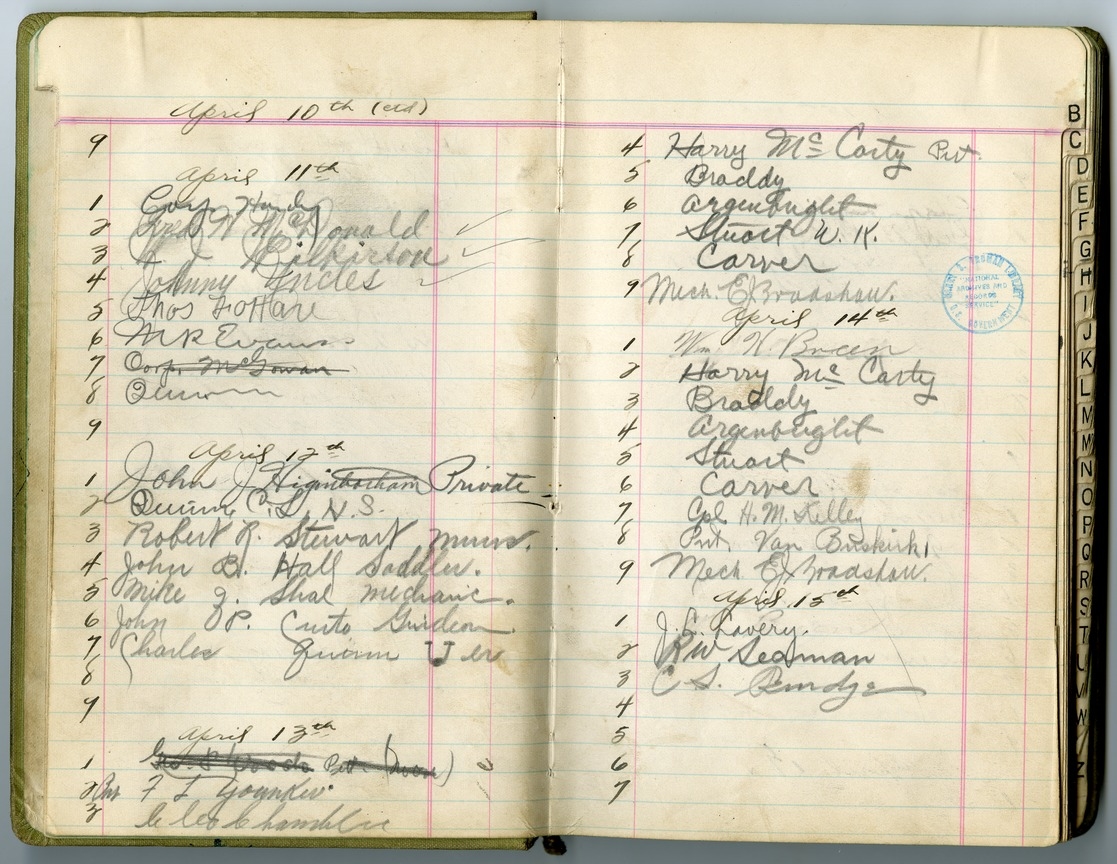 April 10th (ctd)
9
April 11th
1 Corp. Handy
2 Fred W McDonald
3 Wilkirson
4 Johnny Uncles
5 Thos F O'Hare
6 M R Evans
7 Corp. McGowan
8 Quinn
9
April 12th
1 John J Higinbotham Private
2 Quinn C. S. N.S.
3 Robert R. Stewart
4 John B. Hall Saddler.
5 Mike J. Shal mechanic.
6 John OP. Curto
7 Charles Quinn
8
9
April 13th
1 Geo. S Woods Pvt.
2 Pvt F L Younker
3 Cleo Chamblin
4 Harry McCarty Pvt.
5 Braddy
6 Argenbright
7 Stuart W. K.
8 Carver
9 Mech. E J Bradshaw.
April 14th
1 Wm H
2 Harry McCarty
3 Braddy
4 Argenbright
5 Stuart
6 Carver
7 Cpl H. M. Kelley
8 Pvt. Van Buskirk
9 Mech E J Bradshaw.
April 15th
1 J. E. Lavery.
2 R W Seaman
3 C S.
4
5
6
7
NATIONAL
ARCHIVES AND
RECORDS
SERVICE
U.S. GOVERNMENT
B
C
D
E
F
G
H
I
J
K
L
M
M
N
O
P
Q
R
S
T
U
V
W
Z